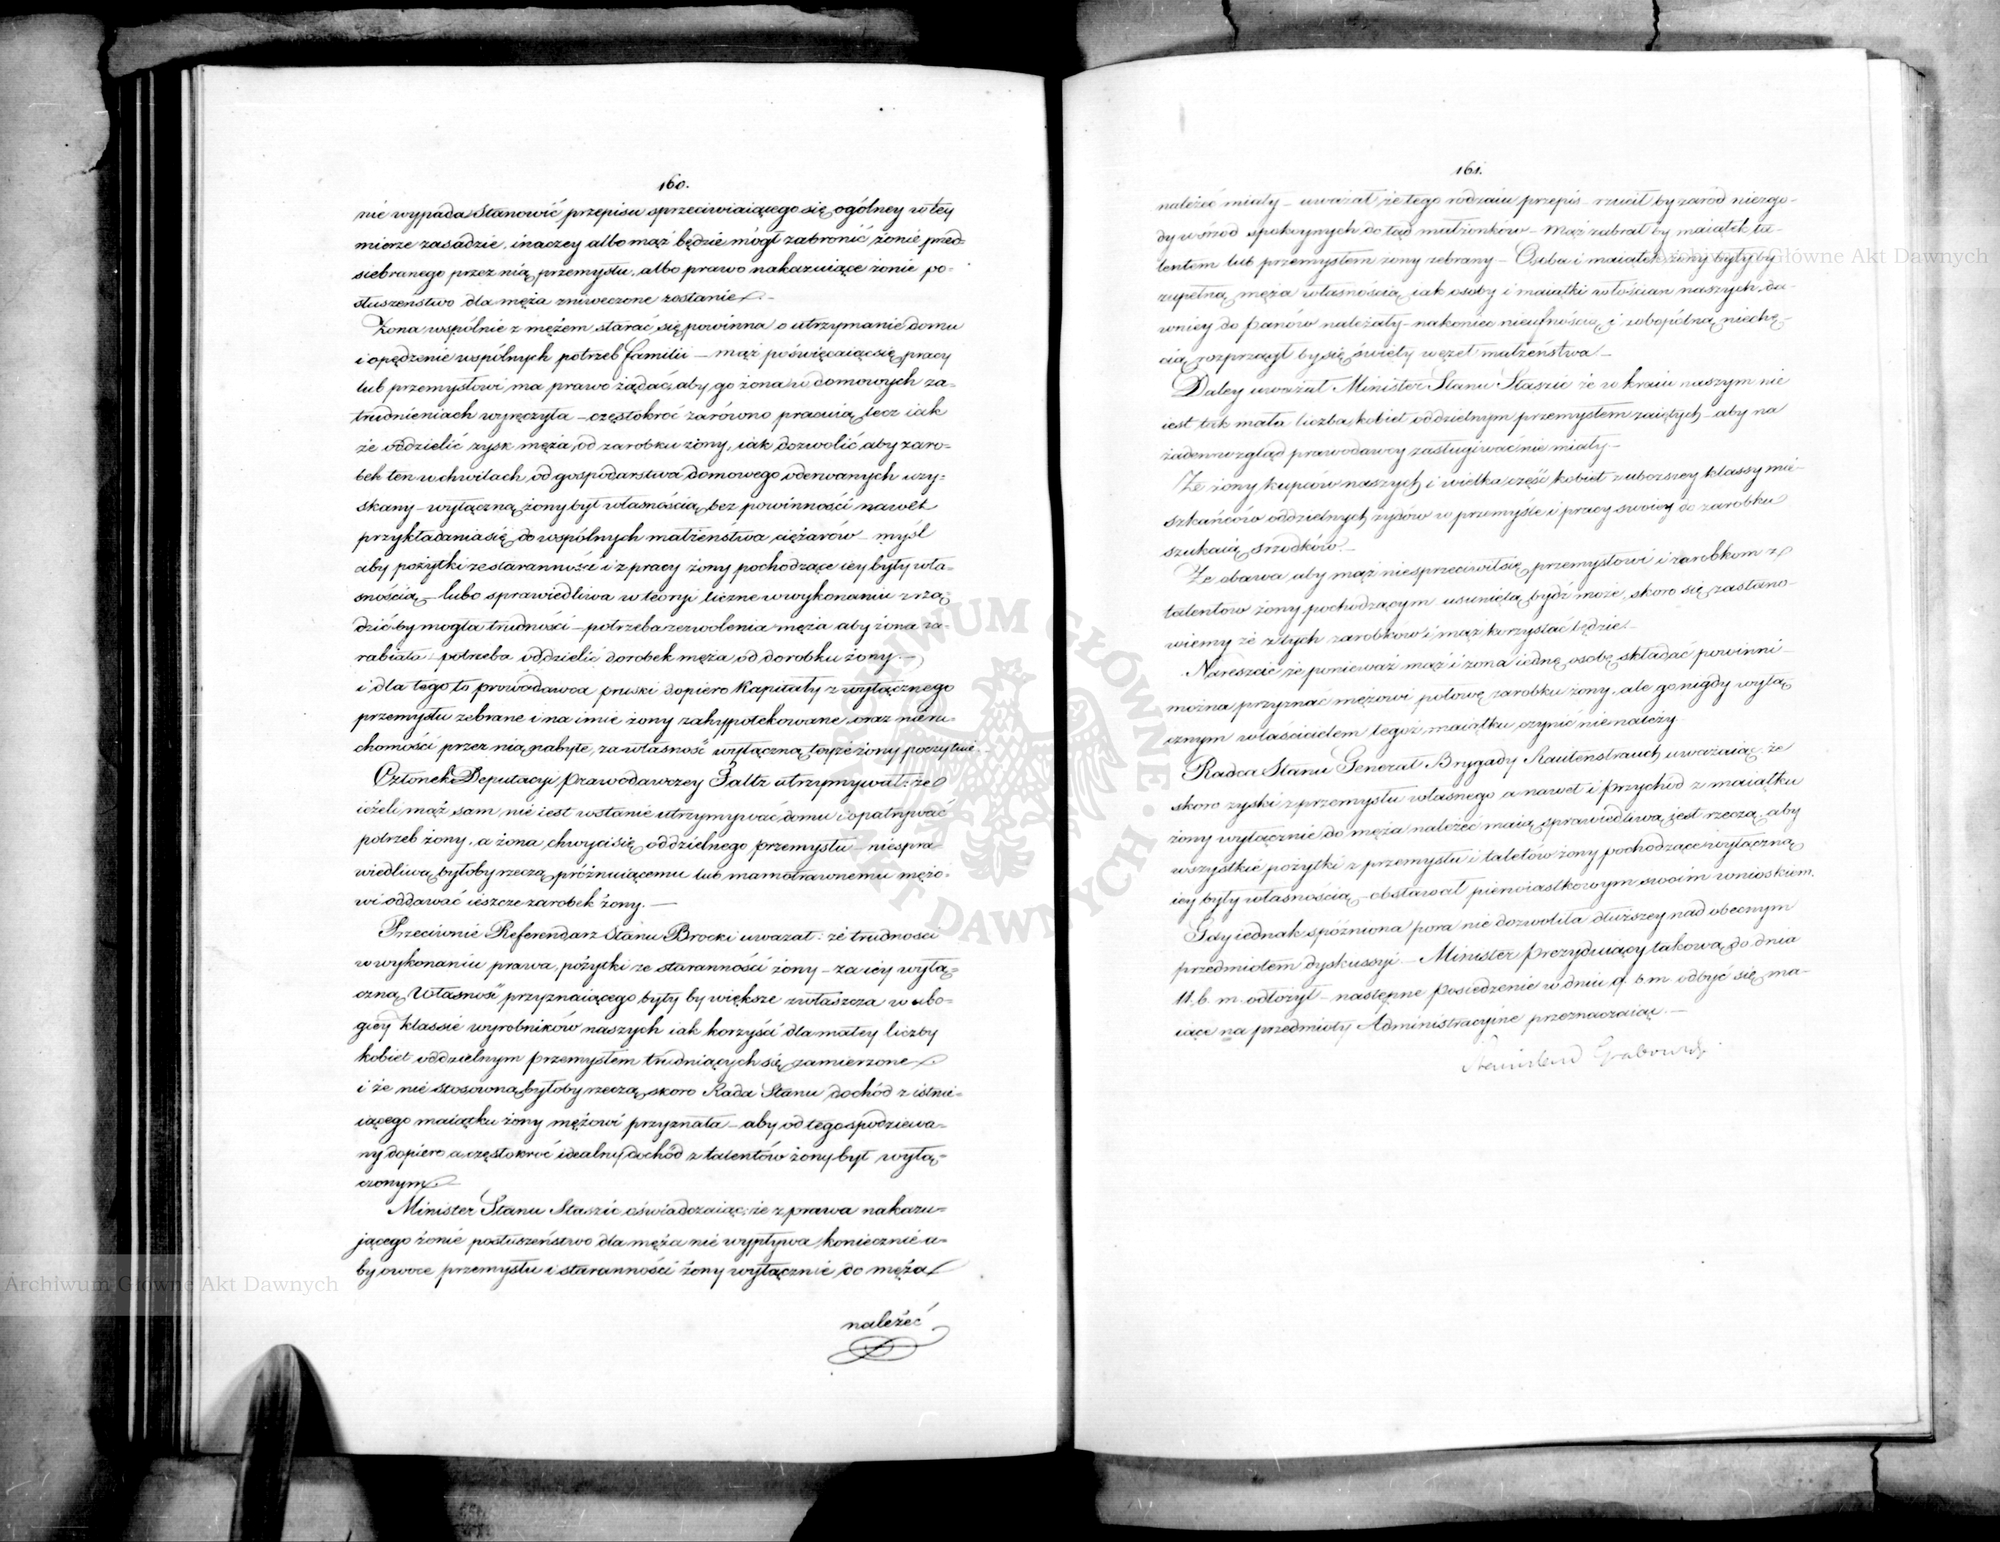 160.
nie wypada stanowić przepisu sprzeciwiaiącego się ogólney w tey
mierze zasadzie, inaczey albo mąż będzie mógł zabronić żonie pred-
siebranego przez nią przemysłu, albo prawo nakazuiące żonie po-
słuszeństwo dla męża zniweczone zostanie.-
Żona wspólnie z mężem starać się powinna o utrzymanie domu
i opędzenie wspólnych potrzeb familii - mąż poświęcaiąc się pracy
lub przemysłowi ma prawo żądać, aby go żona w domowych za-
trudnieniach wyręczyła - częstokroć zarówno pracuią, lecz iak
że oddzielić zysk męża, od zarobku żony, iak dozwolić aby zaro-
bek ten w chwilach, od gospodarstwa domowego oderwanych uzy-
skany - wyłączną żony był własnością, bez powinności nawet
przykładania się do wspólnych małżeństwa ciężarów - myśl
aby pożytki ze staranności i z pracy żony pochodzące iey były wła-
snością - lubo sprawiedliwa w teoryi liczne w wykonaniu zrzą-
dzić by mogła trudności - potrzeba zezwolenia męża aby żona za-
rabiała - potrzeba oddzielić dorobek męża od dorobku żony. -
i dla tego to prawodawca pruski dopiero kapitały z wyłącznego
przemysłu zebrane i na imie żony zahypotekowane, oraz nieru-
chomości przez nią nabyte, za własność wyłączną teyże żony poczytuie.
Członek Deputacyi Prawodawczey Faltz utrzymywał: że
ieżeli mąż sam nie iest w stanie utrzymywać domu i opatrywać
potrzeb żony, a żona chwyci się oddzielnego przemysłu - niespra-
wiedliwą byłoby rzeczą próżnuiącemu lub marnotrawnemu mężo-
wi oddawać ieszcze zarobek żony. -
Przeciwnie Referendarz Stanu Brocki uważał: że trudności
w wykonaniu prawa, pożytki ze staranności żony - za iey wyłą-
czną własność przyznaiącego były by większe zwłaszcza w ubo-
giey klassie wyrobników naszych iak korzyści dla małey liczby
kobiet oddzielnym przemysłem trudniących się zamierzone
i że nie stosowną byłoby rzeczą, skoro Rada Stanu dochód z istnie-
iącego maiątku żony mężowi przyznała - aby od tego spodziewa-
ny dopiero a częstokroć idealny dochód z talentów żony był wyłą-
czonym
Minister Stanu Staszic oświadczaiąc, że z prawa nakazu-
jącego żonie posłuszeństwo dla męża nie wypływa koniecznie a-
by owoce przemysłu i staranności żony wyłącznie do męża
należeć
161.
należeć miały - uważał, że tego rodzaiu przepis - rzucił by zaród niezgo-
dy wśród spokoynych do tąd małżonków - Mąż zabrał by maiątek ta-
lentem lub przemysłem żony zebrany - Osoba i maiątek żony były by
zupełną męża własnością, iak osoby i maiątki włościan naszych da-
wniey do Panów należały - nakoniec nieufnością i obopólną niechę-
cią rozprzągł by się święty węzeł małżeństwa -
Daley uważał Minister Stanu Staszic że w kraiu naszym nie
iest tak mała liczba kobiet oddzielnym przemysłem zaiętych - aby na
żaden wzgląd prawodawcy zasługiwać nie miały -
Że żony kupców naszych i wielka część kobiet z uboższey klassy mie-
szkańców oddzielnych zysków w przemyśle i pracy swoiey do zarobku
szukaią srzodków. -
Że obawa aby mąż niesprzeciwił się przemysłowi i zarobkom z
talentów żony pochodzącym usunięta bydź może, skoro się zastano-
wiemy że z tych zarobków i mąż korzystać będzie. -
Nareszcie że ponieważ mąż i żona iednę osobę składać powinni -
można przyznać mężowi połowę zarobku żony, ale go nigdy wyłą-
cznym właścicielem tegoż maiątku czynić nie należy.
Radca Stanu Generał Brygady Rautenstrauch uważaiąc, że
skoro zyski z przemysłu własnego a nawet i przychód z maiątku
żony wyłącznie do męża należeć maią, sprawiedliwą iest rzeczą, aby
wszystkie pożytki z przemysłu i taletów żony pochodzące wyłączną
iey były własnością - obstawał pierwiastkowym swoim wnioskiem.
Gdy iednak spóźniona pora nie dozwoliła dłuższey nad obecnym
przedmiotem dyskussyi - Minister Prezyduiący takową do dnia
11. b. m. odłożył - następne posiedzenie w dniu 9. b. m. odbyć się ma-
iące na przedmioty Administracyine przeznaczaiąc. -
Stanisław Grabowski
Archiwum Główne Akt Dawnych
Archiwum Główne Akt Dawnych
ARCHIWUM GŁÓWNE · AKT DAWNYCH ·